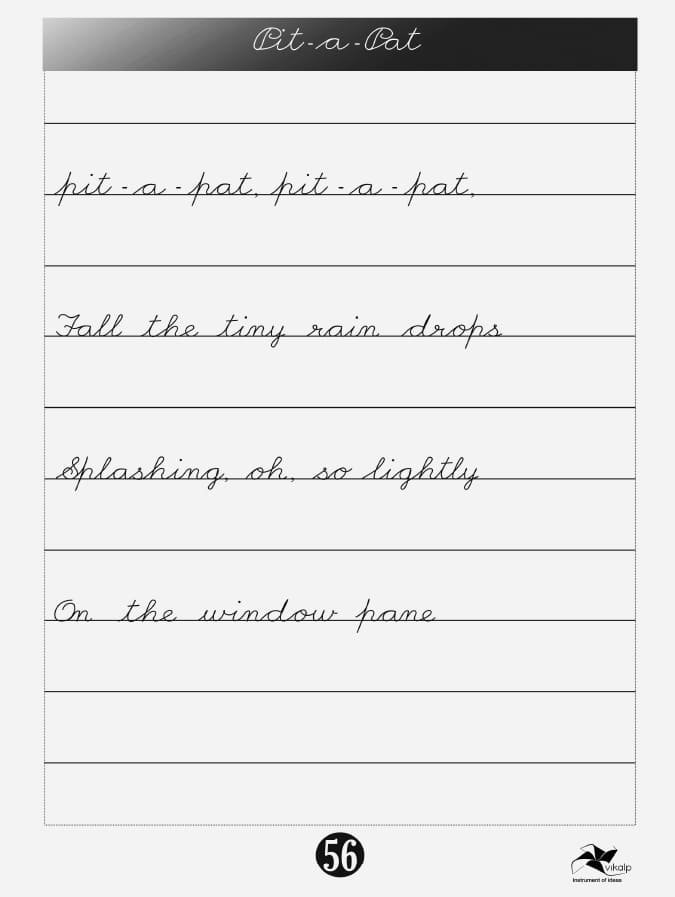 Pit-a-Pat
pit-a-pat, pit-a-pat,
Fall the tiny rain drops
Splashing, oh, so lightly
On the window pane
56
vikalp
Instrument of ideas